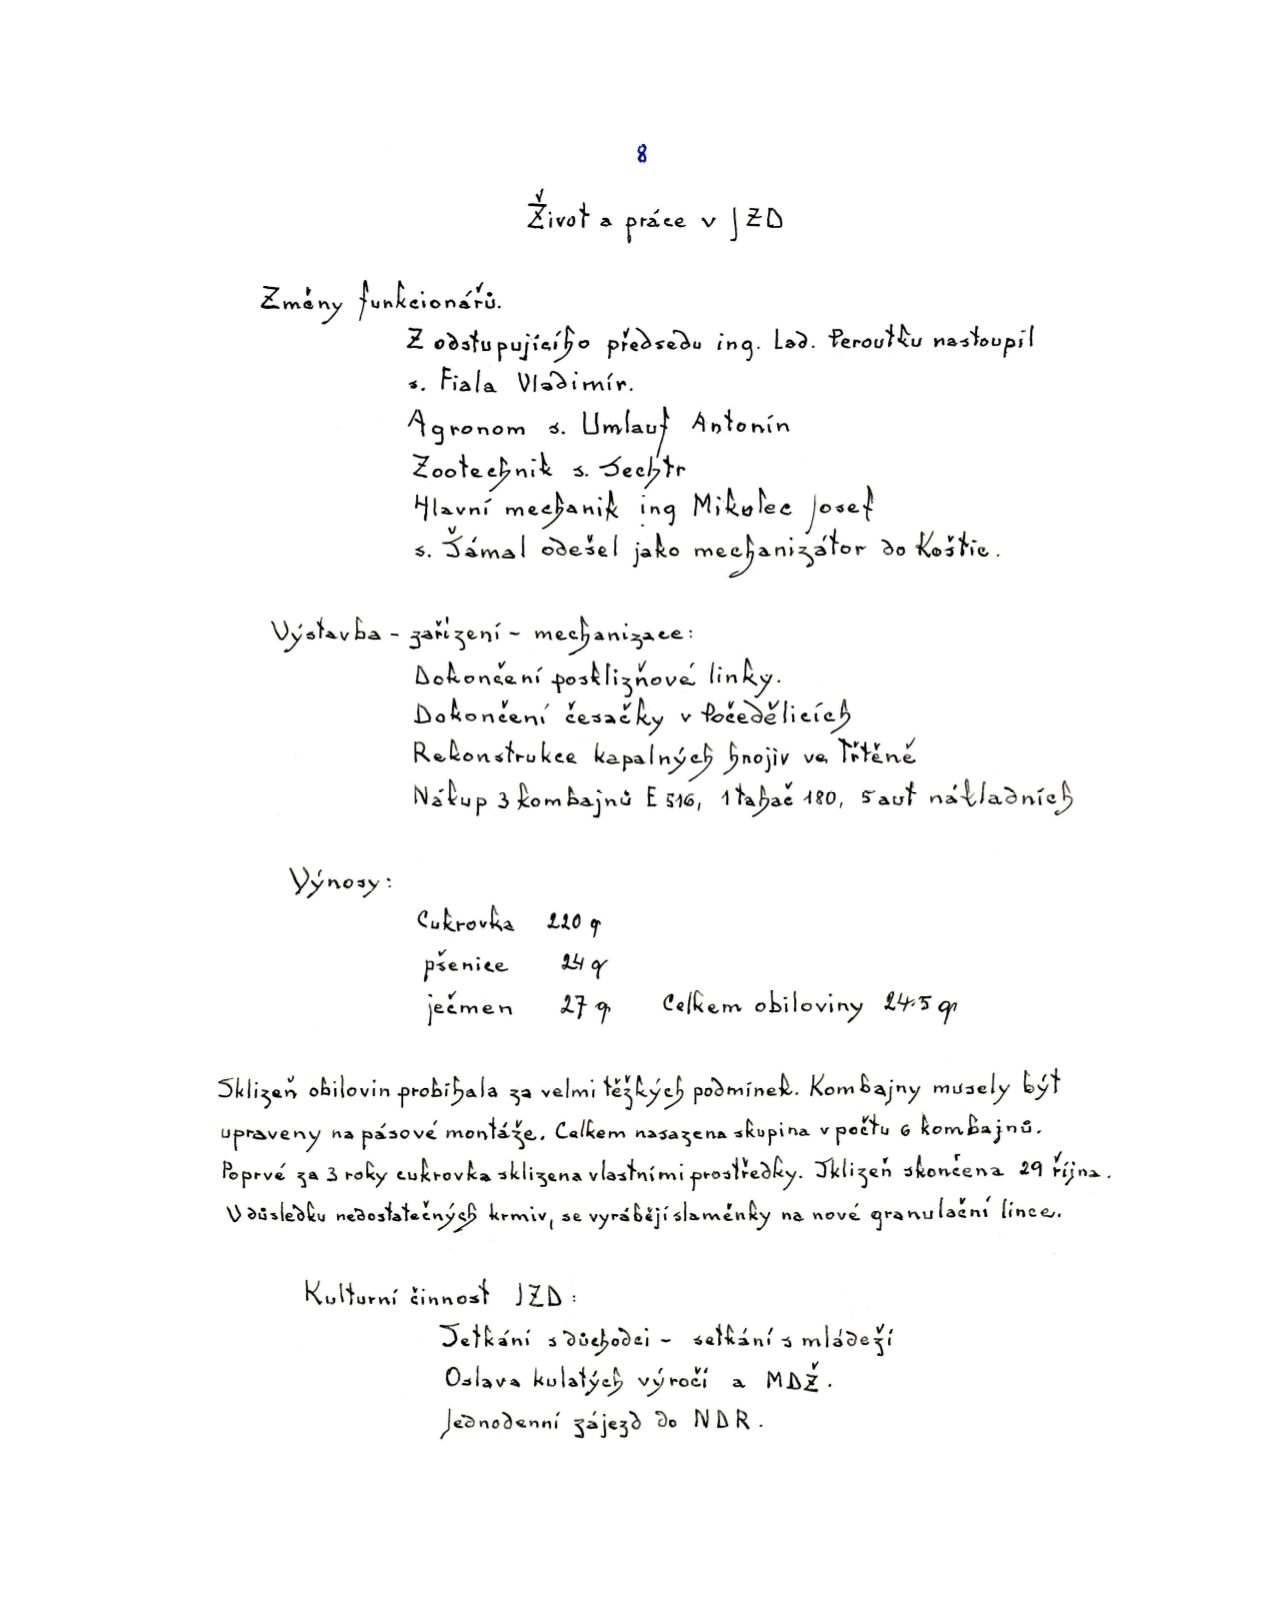 8
Život a práce v JZD
Změny funkcionářů.
Z odstupujícího předsedu ing. Lad. Peroutku nastoupil
s. Fiala Vladimír.
Agronom s. Umlauf Antonín
Zootechnik s. Sechtr
Hlavní mechanik ing Mikolec Josef
s. Šámal odešel jako mechanizátor do Koštic.
Výstavba - zařízení - mechanizace:
Dokončení posklizňové linky.
Dokončení česačky v Počedělicích
Rekonstrukce kapalných hnojiv ve Třtěně
Nákup 3 kombajnů E 516, 1 tahač 180, 5 aut nákladních
Výnosy:
Cukrovka 220 q
pšenice 24 q
ječmen 27 q Celkem obiloviny 24.5 q
Sklizeň obilovin probíhala za velmi těžkých podmínek. Kombajny musely být
upraveny na pásové montáže. Celkem nasazena skupina v počtu 6 kombajnů.
Poprvé za 3 roky cukrovka sklizena vlastními prostředky. Sklizeň skončena 29 října.
V důsledku nedostatečných krmiv, se vyrábějí slaměnky na nové granulační lince.
Kulturní činnost JZD:
Setkání s důchodci - setkání s mládeží
Oslava kulatých výročí a MDŽ.
Jednodenní zájezd do NDR.